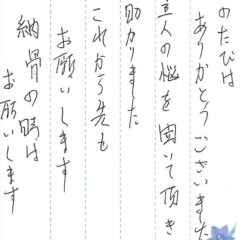 のたびは
ありがとうございました
主人の悩を聞いて頂き
助かりました
これから先も
お願いします
納骨の時は
お願いします